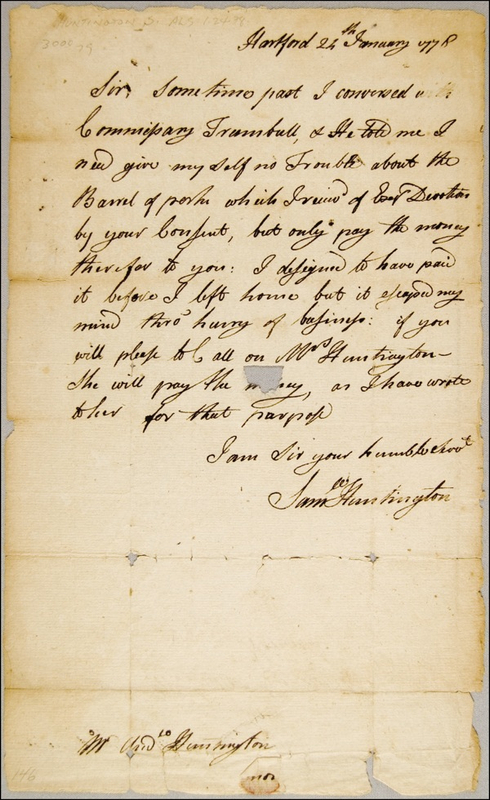 HUNTINGTON S. ALS 1-24-78
3000
Hartford 24th January 1778
Sir, Sometime past I conversed with
Commissary Trumbull, & He told me I
need give my self no Trouble about the
Barrel of pork which I reciev'd of Eben'r Devotion
by your Consent, but only pay the money
therefor to you: I designed to have paid
it before I left home but it escaped my
mind thro' hurry of business: if you
will please to Call on Mrs Huntington
She will pay the money, as I have wrote
to her for that purpose
I am Sir your humble Servt
Saml Huntington
Mr Andw Huntington
146